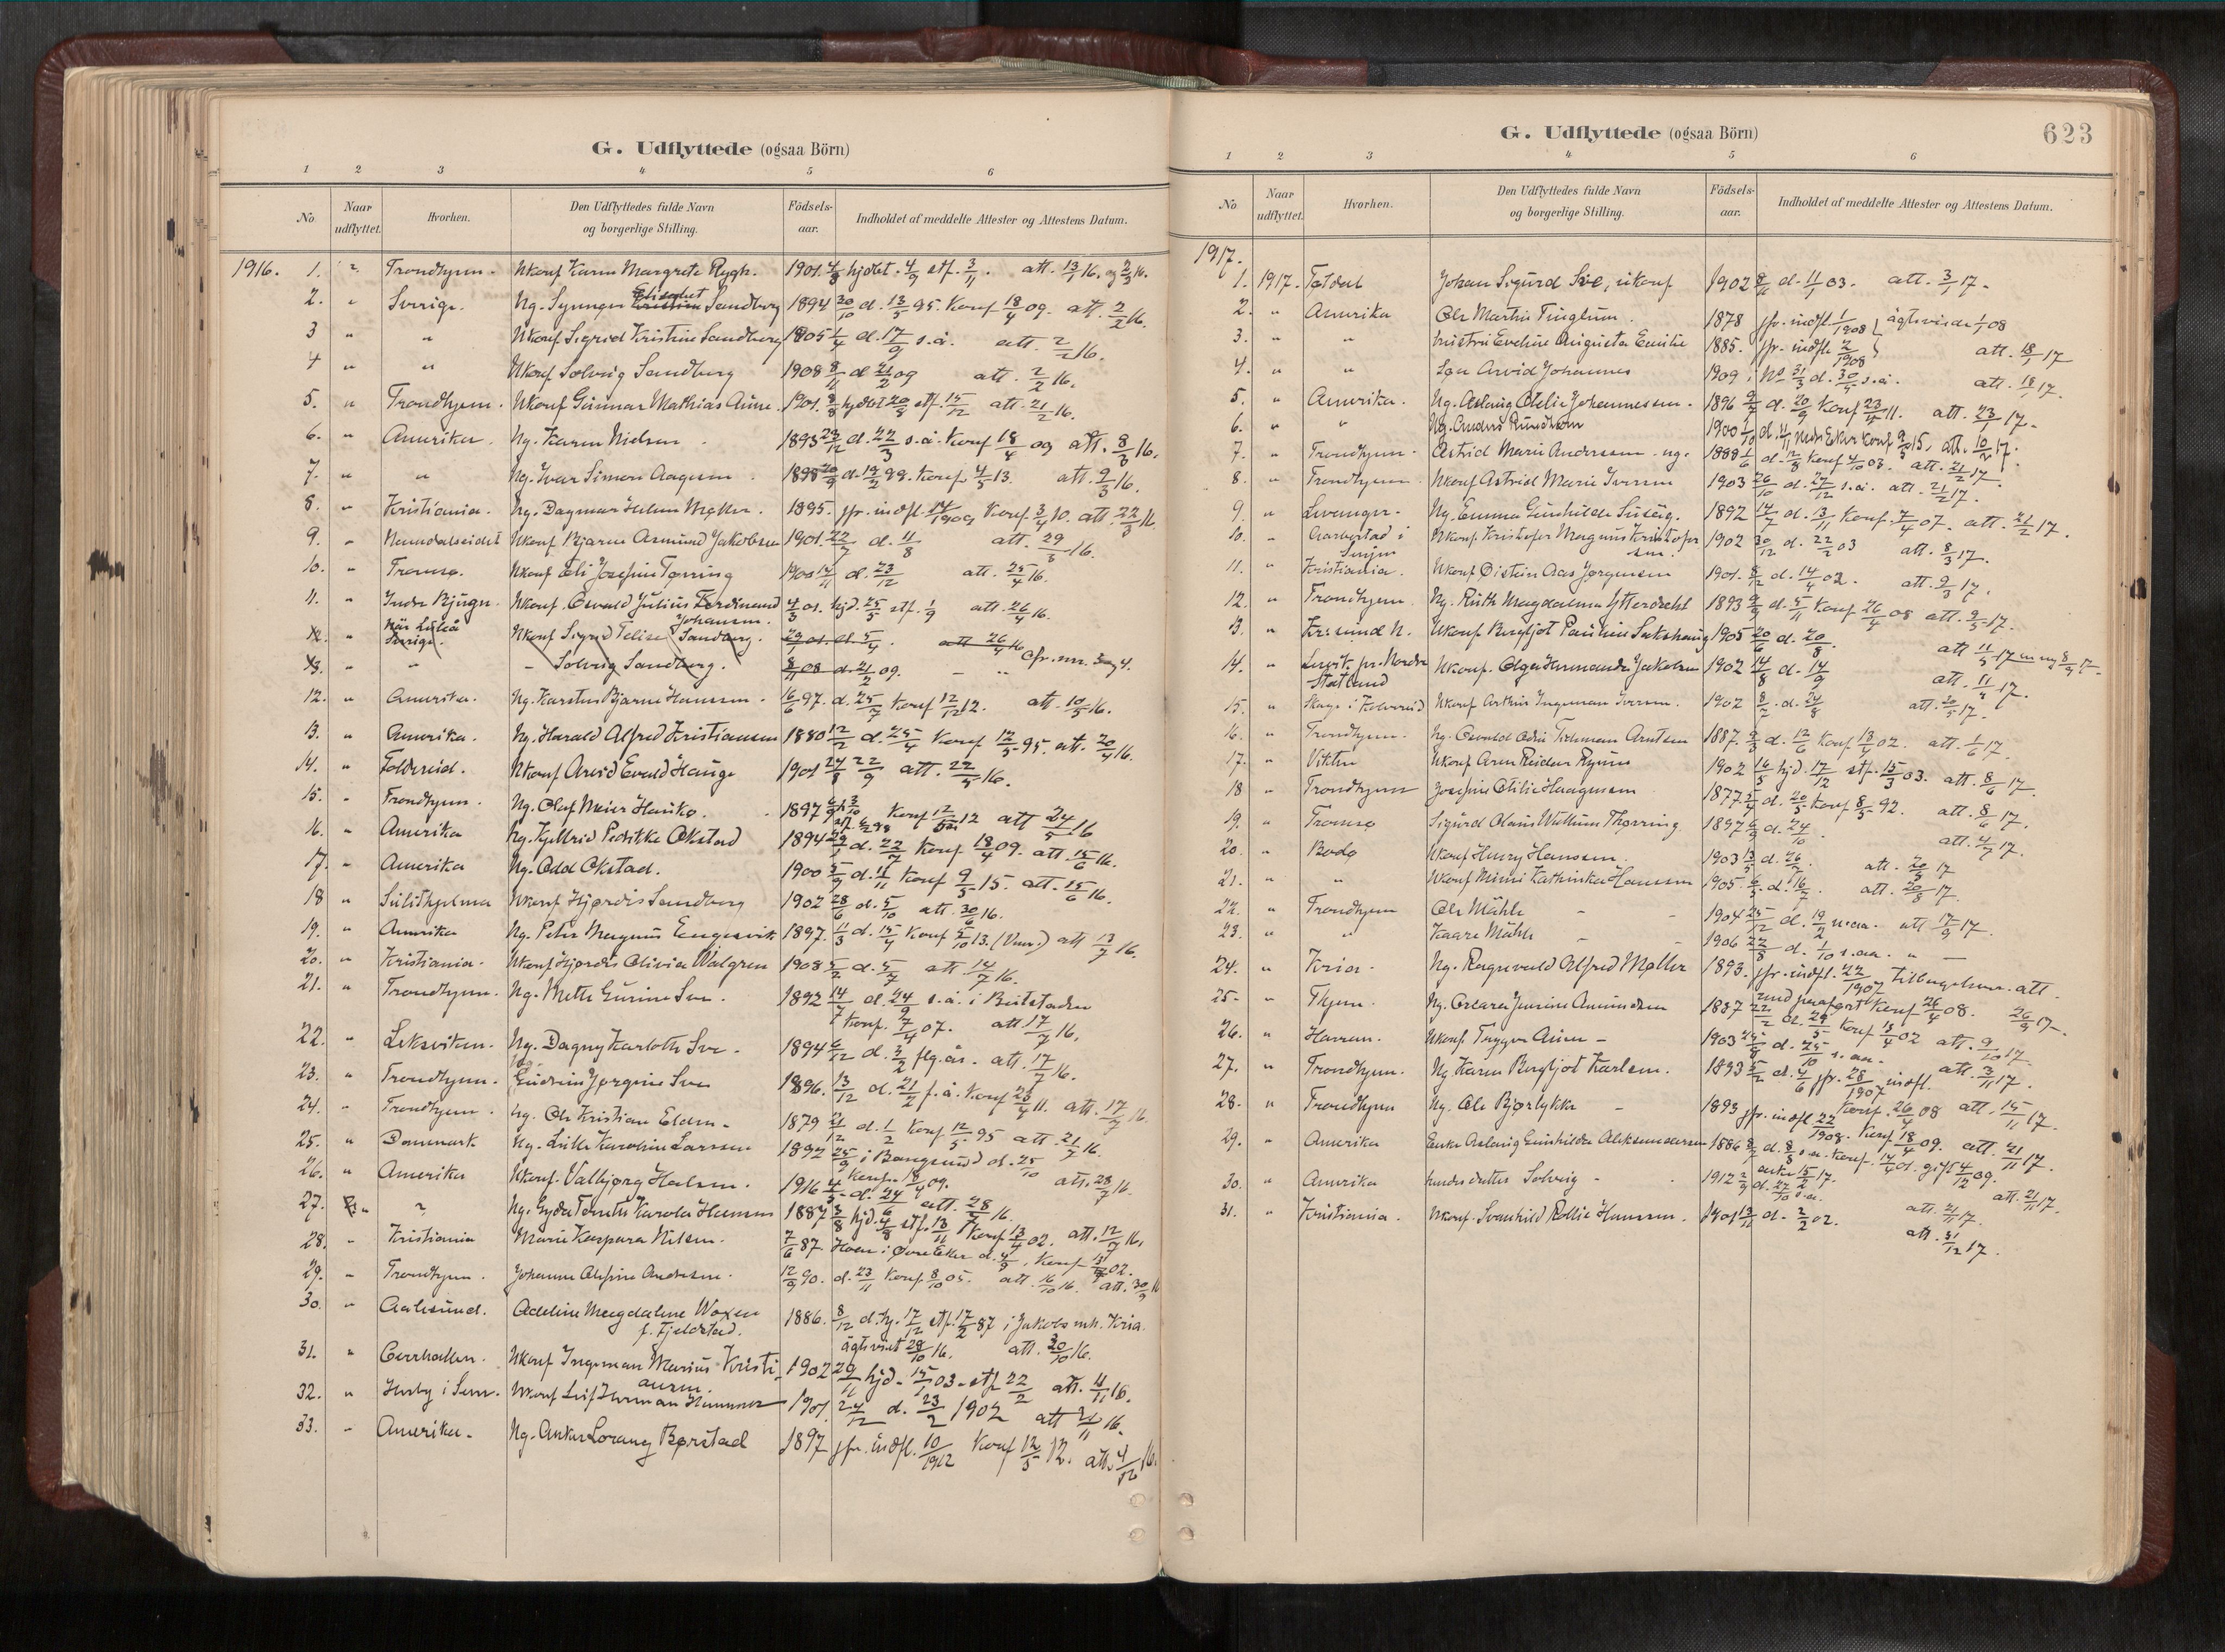 G. Udflyttede (ogsaa Börn)
1 2 3 4 5 6
No Naar udflyttet. Hvorhen. Den Udflyttedes fulde Navn og borgerlige Stilling. Födsels-aar. Indholdet af meddelte Attester og Attestens Datum.
1916. 1. " Trondhjem. Ukonf Karen Margrete Rygh. 1901 4/8 hjdøbt. 4/9 stf. 3/11. att. 13/1 16. og 2/3 16.
2. " Sverige. Ug. Synnøve Elisabet Sandberg 1894 30/10 d. 13/5 95. Konf 18/4 09. att. 2/2 16.
3 " " Ukonf Sigrid Kristine Sandberg 1805 1/4 d. 17/9 s.å. att. 2/2 16.
4 " " Ukonf Solveig Sandberg 1908 8/11 d 21/2 09 att. 2/2 16.
5. " Trondhjem. Ukonf Gunnar Mathias Aune. 1901. 8/8 hjdøbt 20/8 stf. 15/12 att. 21/2 16.
6. " Amerika. Ug. Karen Nielsen 1893 23/12 d. 22/3 s.å. Konf 18/4 09 att. 8/3 16.
7. " " Ug. Ivar Simon Aagesen. 1898 20/9 d. 19/2 99. Konf. 4/5 13. att. 9/3 16.
8. " Kristiania. Ug. Dagmar Helene Møller. 1895. jfr. indfl. 14/1909 Konf. 3/4 10. att. 22/3 16.
9. " Namdalseidet Ukonf Bjarne Asmund Jakobsen 1901. 22/7 d. 11/8 att. 29/3 16.
10. " Tromsø. Ukonf Eli Josefine Tørring 1900 14/11 d. 23/12 att. 25/4 16.
11. " Indre Bjugn. Ukonf. Osvald Julius Ferdinand Johansen. 4/3 01. hjd. 25/5 stf. 1/9 att. 26/4 16.
12. " När Luleå Sverige. Ukonf Sigrid Sandberg. 29/1 01. d. 5/4. att 26/4 16
13. " " - Solveig Sandberg. 8/11 08 d. 21/2 09. - " - Cfr. nr. 3 og 4.
12. " Amerika. Ug. Karsten Bjarne Hansen. 16/6 97. d. 25/7 Konf 12/12 12. att. 10/5 16.
13. " Amerika. Ug. Harald Alfred Kristiansen 1880 12/2 d. 25/4 Konf 12/5 95. att. 20/4 16.
14. " Foldereid. Ukonf Arvid Evald Hauge 1901 24/8 22/9 att. 22/5 16.
15. " Trondhjem. Ug. Olaf Meier Hanikø. 1897 Konf 12/5 12 att 24/5 16
16. " Amerika Ug. Kjellrid Okstad 1894 d. 22/7 Konf 18/4 09. att. 15/6 16.
17. " Amerika Ug. Odd Okstad. 1900 5/9 d. 11/11 Konf 9/5 15. att. 15/6 16.
18 " Sulitjelma Ukonf Hjørdis Sandberg 1902 28/6 d. 5/10 att 30/6 16.
19. " Amerika Ug. Peter Magnus Engesvik 1897. 11/3 d. 15/4 Konf 5/10 13. att 13/7 16.
20. " Kristiania. Ukonf Hjørdis Olivia Walgren 1908 5/2 d. 5/7 att 14/7 16.
21. " Trondhjem. Ug. Mette Gurine Sve. 1892 14/7 d. 24/9 s.å. i Beitstaden
Konf. 7/4 07. att. 17/7 16.
22. " Leksviken. Ug. Dagny Karlotte Sve. 1894 6/12 d. 3/2 flg. år. att. 17/7 16.
23. " Trondhjem. Ug. Gudrun Jørgine Sve 1896. 13/12 d. 21/2 f.å. Konf 23/4 11. att. 17/7 16.
24. " Trondhjem. Ug. Ole Kristian Elden. 1879 21/12 d. 1/2 Konf 12/5 95 att. 21/7 16.
25. " Danmark Ug. Lilly Karoline Larsen 1892 25/9 i Bangsund d. 25/10
Konf. 18/4 09. att. 28/7 16.
26. " Amerika Ukonf. Valbjørg Halsen. 1916 4/5 d. 24/6 att. 28/7 16.
27. " " Ug. Gyda Karola Hansen 1887 3/8 hjd. 4/8 stf. 13/11 Konf 13/4 02. att. 12/9 16.
28. " Kristiania Marie Kaspara Nilsen. 7/6 87. Hoen i Øvre Eiker d. 4/9, Konf 13/4 02. att. 30/9 16
29. " Trondhjem. Johanna Andersen. 12/9 90. d. 23/11 Konf 8/10 05. att. 16/10 16.
30. " Aalesund. Adeline Magdalene Woxen f. Fjeldstad. 1886. 8/12 d. hj. 17/12 stf. 17/2 87 i Jakobs mh. Kria.
ägteviet 28/10 16. att. 30/10 16.
31. " Overhallen. Ukonf Ingeman Marius Kristiansen. 1902 29/11 hjd. 15/1 03. stf 22/2 att. 4/11 16.
32. " Ukonf Leif Herman Hammer 1901. 24/12 d. 23/2 1902 att 21/11 16.
33. " Amerika. Ug. Anker Lorang Børstad 1897 jfr. indfl. 10/1912 Konf 12/5 12. att. 4/12 16.
G. Udflyttede (ogsaa Börn) 623
1 2 3 4 5 6
No Naar udflyttet. Hvorhen. Den Udflyttedes fulde Navn og borgerlige Stilling. Födsels-aar. Indholdet af meddelte Attester og Attestens Datum.
1917.
1. 1917. Johan Sigurd Sve, ukonf 1902 8/11 d. 11/1 03. att. 3/1 17.
2. " Amerika Ole Martin Tinglum. 1878 jfr. indfl. 1/1908 ägteviede 1/1 08
3. " " hustru Eveline Augusta Emilie 1885. jfr. indfl. 2/1908 att. 18/1 17
4. " " Søn Arvid Johannes 1909 i No 31/3 d. 30/5 s.å. att. 18/1 17.
5. " Amerika. Ug. Aslaug Otelie Johannessen. 1896 9/7 d. 20/9 Konf 23/4 11. att. 23/1 17.
6. " " Ug. Anders Rundholm 1900 1/10 d. 11/11 Nedre Eiker Konf 9/5 15, att. 10/2 17.
7. " Trondhjem. Astrid Marie Andersen. ug. 1888 1/6 d. 12/8 Konf 4/10 03. att. 21/2 17.
8. " Trondhjem. Ukonf Astrid Marie Iversen 1903 26/10 d. 27/12 s.å. att. 21/2 17.
9. " Levanger. Ug. Emma Gunhilde Suseg. 1892 14/7 d. 13/11 Konf. 7/4 07. att. 21/2 17.
10. " i Senjen Ukonf. Kristofer Magnus Kristofersen. 1902 30/12 d. 22/2 03 att. 8/3 17.
11. " Kristiania. Ukonf Øistein Aas Jørgensen 1901. 8/12 d. 14/4 02. att. 9/3 17.
12. " Trondhjem. Ug. Ruth Magdalena Ytterdahl 1893 9/9 d. 5/11 Konf 26/4 08 att. 9/3 17.
13. " Kr.sund N. Ukonf Bergljot Pauline Sakshaug 1905 20/6 d. 20/8. att 11/4 17 en ny 8/9 17
14. " Lervik pr. Nordre Statland Ukonf. Olga Hermanda Jakobsen 1902 14/8 d. 14/9 att. 11/4 17.
15. " Skage i Kolvereid Ukonf Arthur Ingeman Iversen. 1902 8/7. d. 24/8 att. 30/5 17.
16. " Trondhjem. Ug. Osvald Odin Arntsen 1887. 9/3 d. 12/6 Konf 13/4 02. att. 1/6 17.
17. " Vikten Ukonf Arne Reidar Rynes 1902 16/5 hjd. 17/12 stf. 15/3 03. att. 8/6 17.
18 " Trondhjem Josefine Otilie Haagensen 1877 5/4 d. 20/5 Konf 8/5 92. att. 8/6 17.
19. " Tromsø Sigurd Olaus Wullum Thørring. 1897 6/9 d. 24/10. att. 4/7 17.
20. " Bodø Ukonf Henry Hanssen. 1903 13/5 d. 26/7 att. 20/8 17
21. " " Ukonf Mimi Kathinka Hanssen 1905. 6/5 d. 16/7. att. 20/8 17.
22. " Trondhjem Ole Mähle - - 1904 25/12 d. 19/2 n.aa. att 17/9 17.
23. " " Kaare Mähle - 1906 22/8 d. 1/10 s.aa. " -
24. " Kria. Ug. Ragnvald Alfred Møller 1893. jfr. indfl. 22/1907 tilbagelever. att.
med paafört Konf 26/4 08. 26/9 17.
25. " Thjem. Ug. Oskara Jensine Amundsen 1887 22/2 d. 29/5 Konf 13/4 02 att. 9/10 17
26. " Harran. Ukonf Trygve Aune - 1903 d. 25/10 s.aa. att. 3/11 17.
27. " Trondhjem. Ug Karen Bergljot Karlsen. 1893 5/2 d. 4/6 jfr. 28/1907 indfl.
Konf. 26/4 08 att. 15/11 17.
28. " Trondhjem Ug. Ole Bjørlykke - 1893 jfr. indfl 22/1908. Konf 18/4 09. att. 21/11 17.
29. " Amerika Enke Aslaug Gunhilde Aleksandersen 1886 8/7 d. 8/8 s.a. Konf. 14/4 01. gift 4/12 09.
enke 15/2 17. att. 21/11 17.
30. " Amerika hendes datter Solveig - 1912 2/9 d. 27/10 s.a. att. 21/11 17.
31. " Kristiania. Ukonf. Svanhild Rollie Hanssen. 1901 13/11 d. 2/2 02. att. 31/12 17.